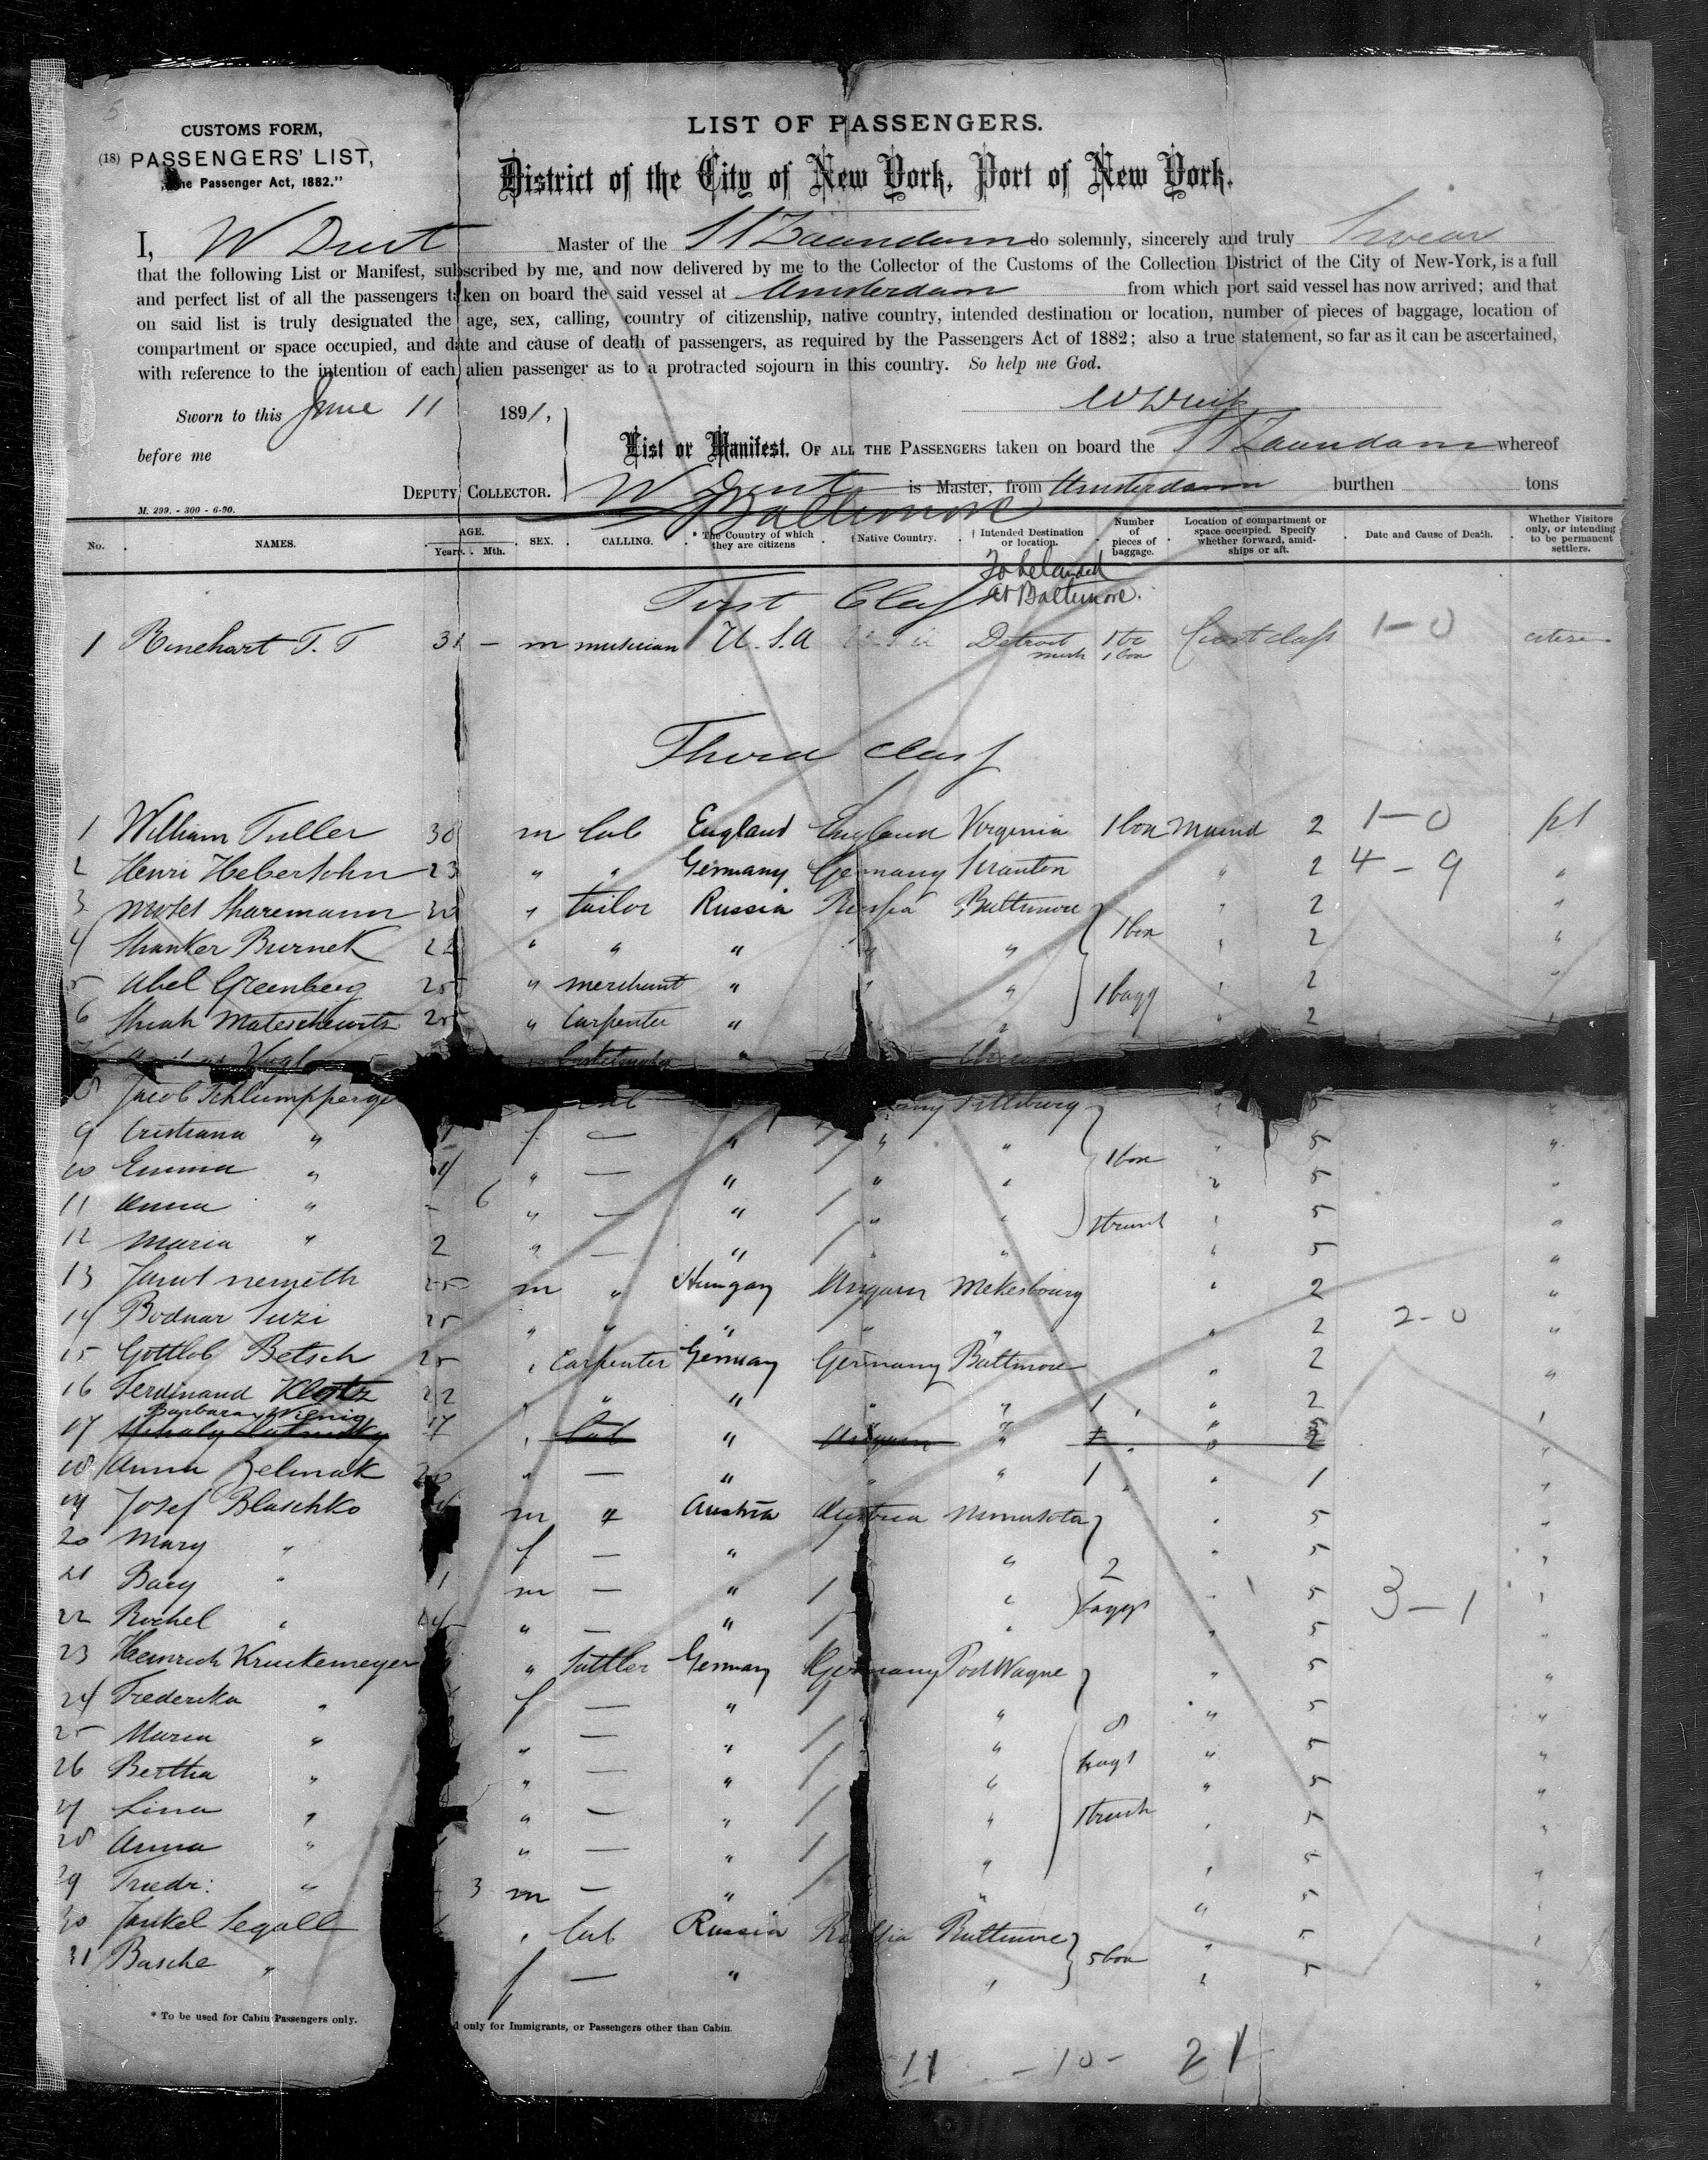 5
CUSTOMS FORM,
(18) PASSENGERS' LIST,
Passenger Act, 1882."
LIST OF PASSENGERS.
District of the City of New York, Port of New York.
I, W Druit Master of the SS Zaandam do solemnly, sincerely and truly swear
that the following List or Manifest, subscribed by me, and now delivered by me to the Collector of the Customs of the Collection District of the City of New-York, is a full
and perfect list of all the passengers taken on board the said vessel at Amsterdam from which port said vessel has now arrived; and that
on said list is truly designated the age, sex, calling, country of citizenship, native country, intended destination or location, number of pieces of baggage, location of
compartment or space occupied, and date and cause of death of passengers, as required by the Passengers Act of 1882; also a true statement, so far as it can be ascertained,
with reference to the intention of each alien passenger as to a protracted sojourn in this country. So help me God.
Sworn to this June 11 1891,
W Druit
before me
List or Manifest. OF ALL THE PASSENGERS taken on board the SS Zaandam whereof
DEPUTY COLLECTOR. W Druit is Master, from Amsterdam burthen tons
Baltimore
M. 299. - 300 - 6-90.
No. NAMES. AGE. Years. Mth. SEX. CALLING. * The Country of which they are citizens † Native Country. † Intended Destination or location. Number of pieces of baggage. Location of compartment or space occupied. Specify whether forward, amidships or aft. Date and Cause of Death. Whether Visitors only, or intending to be permanent settlers.
To be landed
First Class at Baltimore.
1 Rinehart T. T 31 — m musician U.S.A U.S.A Detroit Mich 1 box First class 1-0 citizen
Third Class
1 William Fuller 30 m lab England England Virginia 1 box 2 1-0
2 Henri Hebersohn 23 " " Germany Germany Scranton " 2 4-9 "
3 Moses Sharemann 30 " tailor Russia Russia Baltimore " 2 "
4 Shanker Burnek 22 " " " " " 1 box " 2 "
5 Abel Greenberg 25 " merchant " " " 1 bagg " 2 "
6 Mateschewitz 25 " Carpenter " " " 2
8 Jacob Schlumpperge lab Pittsburg " 5 "
9 Cristiana " f — " " " " 5 "
10 Emma " 4 " — " " " 1 box " 5 "
11 Anna " - 6 " — " " " 1 trunk " 5 "
12 Maria " 2 " — " " " " 5 "
13 Nemeth 25 m " Hungary Ungarn Mekesbourg " 2 "
14 Bodnar Suzi 25 " " " " " 2 2-0 "
15 Gottlob Betsch 25 " Carpenter Germany Germany Baltimore " 2 "
16 Ferdinand Klotz 22 " " " " " 1 " 2
Barbara
17 17 " lab " Ungarn " 1 " 2
18 Anna Zelinak 20 " — " " " 1 " 1 "
19 Josef Blaschko m " Austria Austria Minnesota " 5 "
20 Mary " f — " " 2 " 5 "
21 Bary " 1 m — " " baggs " 5 3-1 "
22 Rochel " " — " " " 5 "
23 Heinrich Kruckemeyer " Sattler Germany Germany " 5 "
24 Frederika " f — " " " 5 "
25 Maria " " — " " 8 " 5 "
26 Bertha " " — " " bags " 5 "
27 Lina " " — " " 1 trunk " 5 "
28 Anna " " — " " " 5 "
29 Friedr: " 3 m — " " " "
30 Jankel Segall " lab Russia Russia Baltimore " 5 "
31 Basche " f — " " 5 box " 5 "
* To be used for Cabin Passengers only. only for Immigrants, or Passengers other than Cabin.
11 - 10 - 21